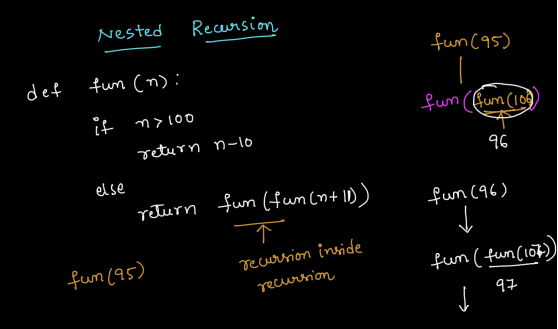 Nested Recursion
def fun(n):
if n>100
return n-10
else
return fun(fun(n+11))
recursion inside
recursion
fun(95)
fun(95)
fun(fun(106))
96
fun(96)
fun(fun(107))
97